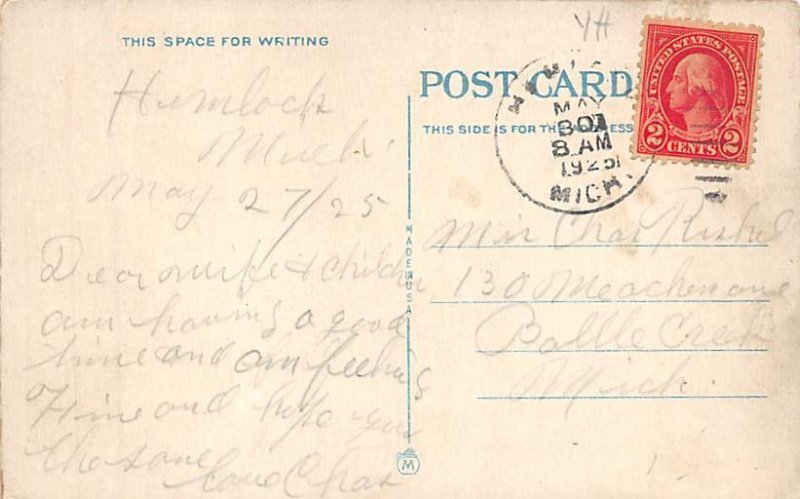 YH
THIS SPACE FOR WRITING
Hemlock
Mich
May 27/25
Dear wife & childre
am having a good
time and am feeling
Fine and hope you
the same
love Chas
MADE IN USA
M
POST CARD
THIS SIDE IS FOR THE ADDRESS
MAY
30
8 AM
1925
MICH.
UNITED STATES POSTAGE
2 CENTS 2
Mrs Chas
130 Meachem ave
Battle Creek
Mich.